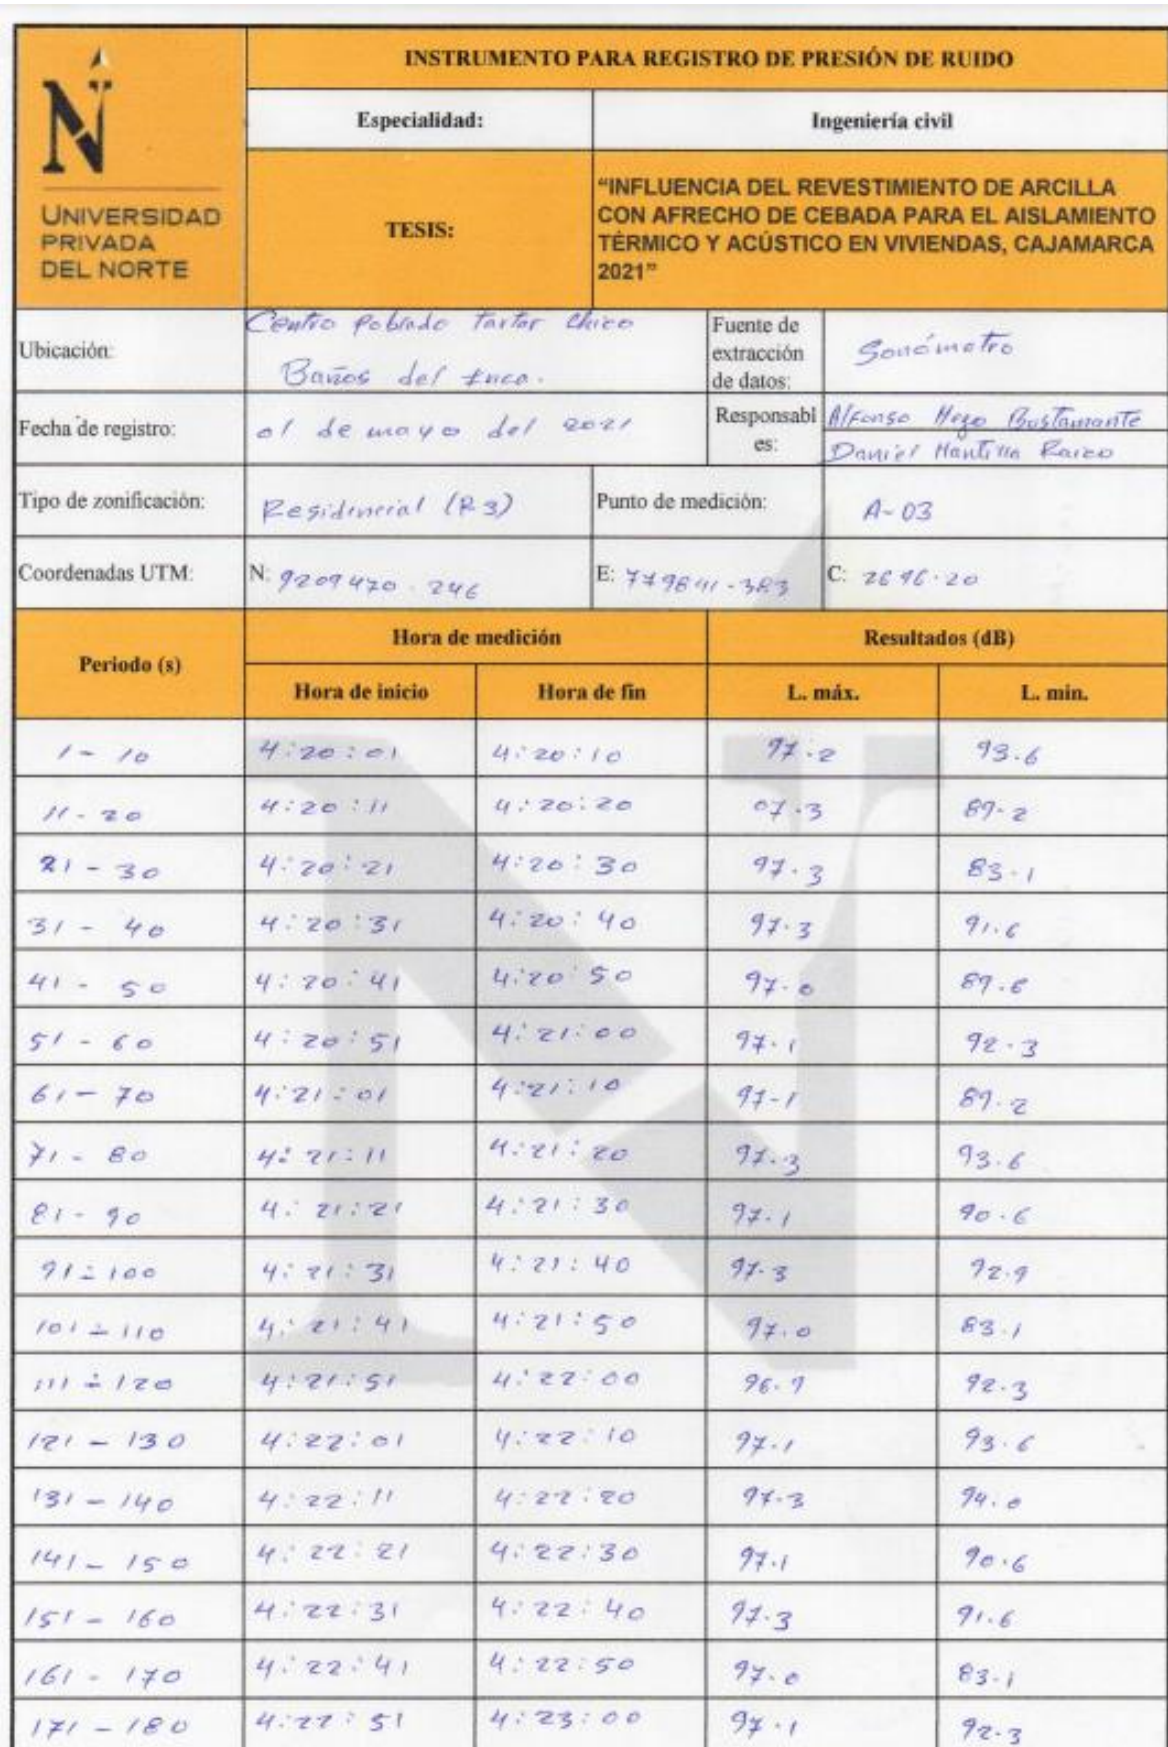 INSTRUMENTO PARA REGISTRO DE PRESIÓN DE RUIDO
UNIVERSIDAD
PRIVADA
DEL NORTE
Especialidad: Ingeniería civil
TESIS:
“INFLUENCIA DEL REVESTIMIENTO DE ARCILLA
CON AFRECHO DE CEBADA PARA EL AISLAMIENTO
TÉRMICO Y ACÚSTICO EN VIVIENDAS, CAJAMARCA
2021”
Ubicación: Centro Poblado Tartar Chico
Baños del Inca.
Fuente de
extracción
de datos: Sonómetro
Fecha de registro: 01 de mayo del 2021
Responsabl
es: Alfonso Bustamante
Daniel Mantilla
Tipo de zonificación: Residencial (R3) Punto de medición: A-03
Coordenadas UTM: N: 9209470.246 E: 779841.383 C: 2696.20
Periodo (s) Hora de medición Resultados (dB)
Hora de inicio Hora de fin L. máx. L. min.
1 - 10 4:20:01 4:20:10 97.2 93.6
11 - 20 4:20:11 4:20:20 07.3 89.2
21 - 30 4:20:21 4:20:30 97.3 83.1
31 - 40 4:20:31 4:20:40 97.3 91.6
41 - 50 4:20:41 4:20:50 97.0 89.6
51 - 60 4:20:51 4:21:00 97.1 92.3
61 - 70 4:21:01 4:21:10 97.1 89.2
71 - 80 4:21:11 4:21:20 97.3 93.6
81 - 90 4:21:21 4:21:30 97.1 90.6
91 - 100 4:21:31 4:21:40 97.3 92.9
101 - 110 4:21:41 4:21:50 97.0 83.1
111 - 120 4:21:51 4:22:00 96.9 92.3
121 - 130 4:22:01 4:22:10 97.1 93.6
131 - 140 4:22:11 4:22:20 97.3 94.0
141 - 150 4:22:21 4:22:30 97.1 90.6
151 - 160 4:22:31 4:22:40 97.3 91.6
161 - 170 4:22:41 4:22:50 97.0 83.1
171 - 180 4:22:51 4:23:00 97.1 92.3